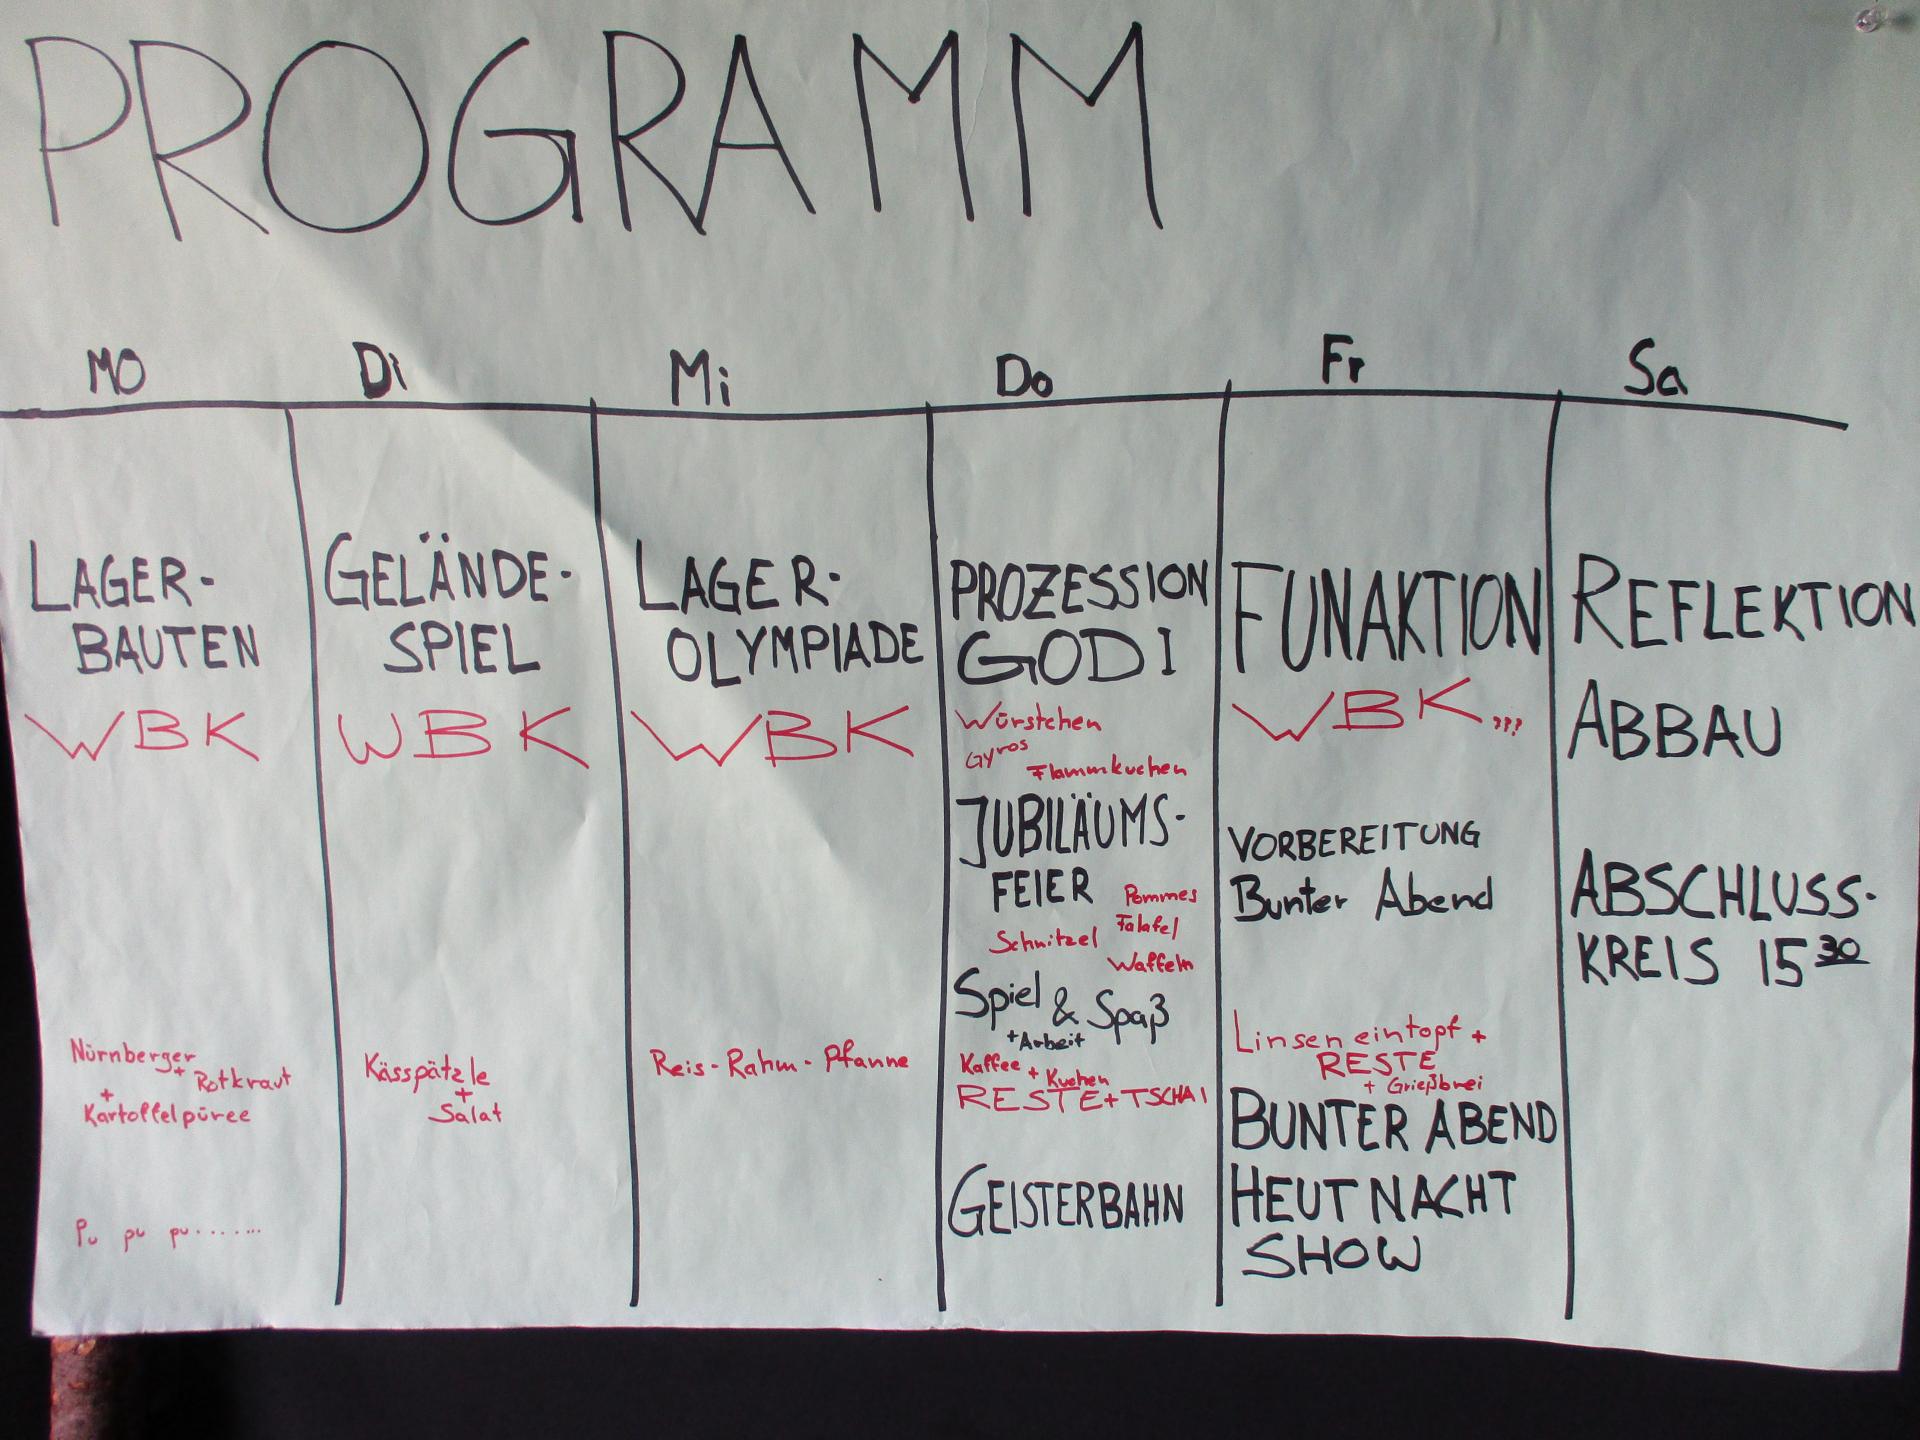 PROGRAMM
MO
Di
Mi
Do
Fr
Sa
LAGER-
BAUTEN
WBK
Nürnberger
+ Rotkraut
+
Kartoffelpüree
Pu pu pu........
GELÄNDE-
SPIEL
WBK
Kässpätzle
+
Salat
LAGER-
OLYMPIADE
WBK
Reis-Rahm-Pfanne
PROZESSION
GODI
Würstchen
Gyros
Flammkuchen
JUBILÄUMS-
FEIER
Pommes
Falafel
Schnitzel
Waffeln
Spiel & Spaß
+Arbeit
Kaffee + Kuchen
RESTE+TSCHAI
GEISTERBAHN
FUNAKTION
WBK,,???
VORBEREITUNG
Bunter Abend
Linseneintopf +
RESTE
+ Grießbrei
BUNTER ABEND
HEUT NACHT
SHOW
REFLEKTION
ABBAU
ABSCHLUSS-
KREIS 15 30